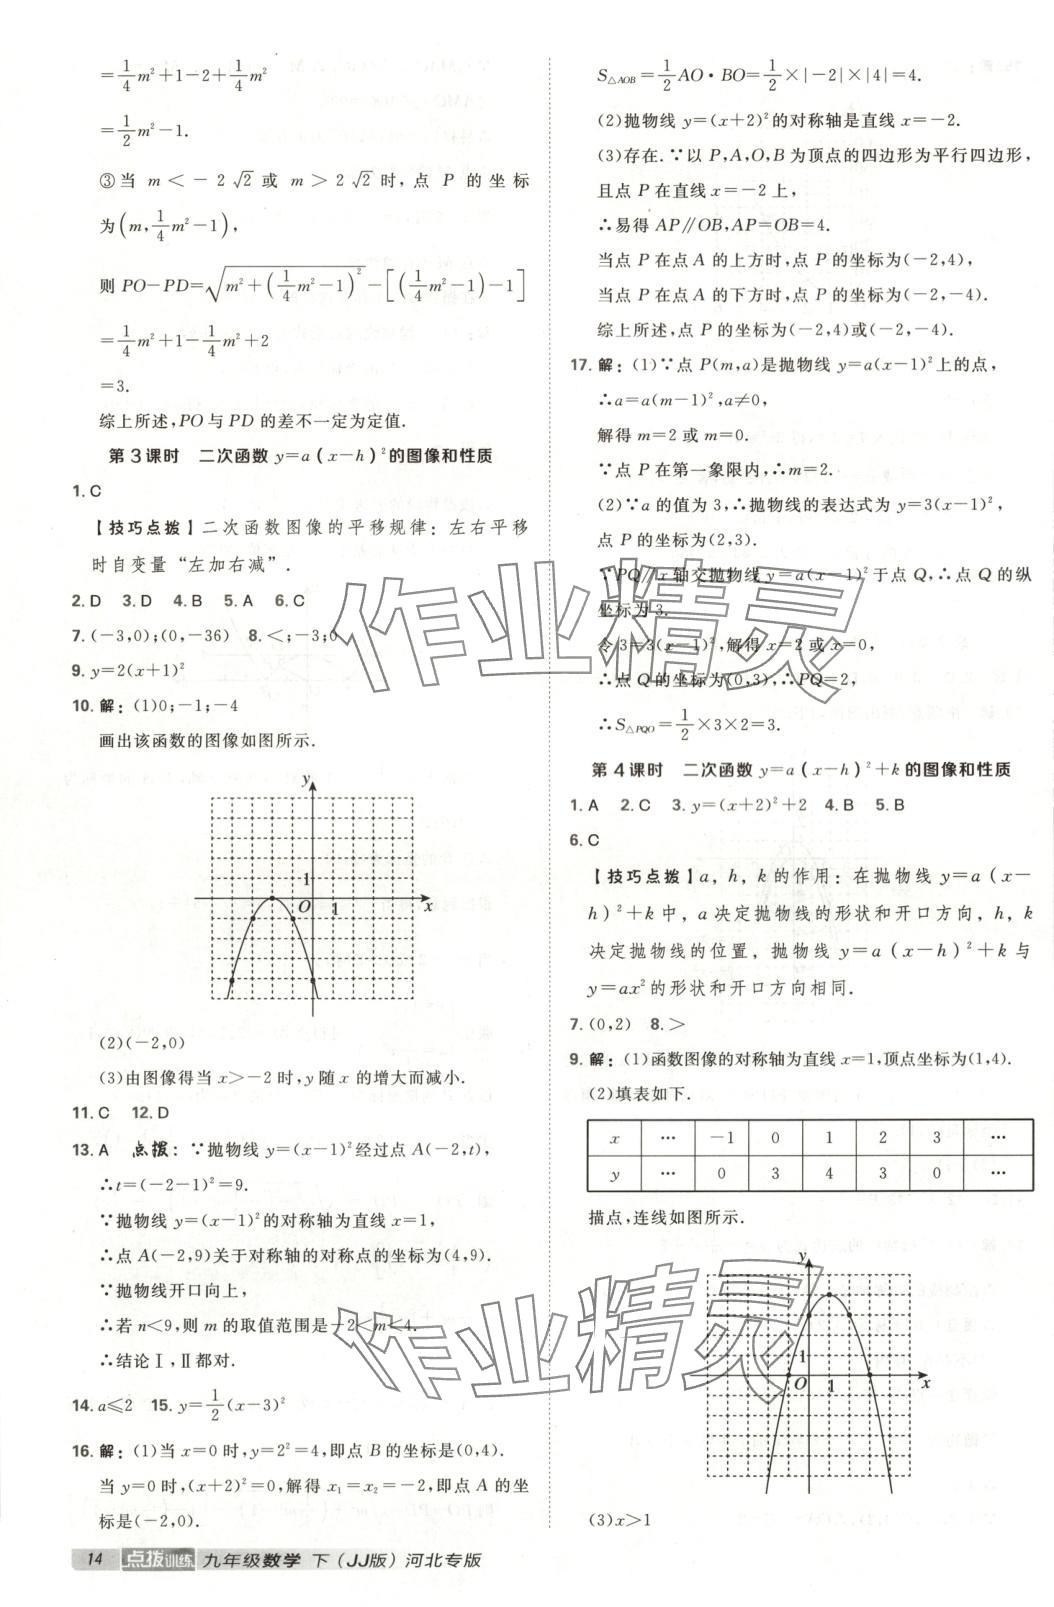 =1/4m²+1-2+1/4m²
=1/2m²-1.
③当 m<-2√2或 m>2√2时,点 P 的坐标
为(m,1/4m²-1),
则 PO-PD=√(m²+(1/4m²-1)²)-[(1/4m²-1)-1]
=1/4m²+1-1/4m²+2
=3.
综上所述,PO与 PD 的差不一定为定值.
第3课时 二次函数 y=a(x-h)²的图像和性质
1.C
【技巧点拨】二次函数图像的平移规律：左右平移
时自变量“左加右减”.
2.D 3.D 4.B 5.A 6.C
7.(-3,0);(0,-36) 8.<;-3;0
9.y=2(x+1)²
10.解:(1)0;-1;-4
画出该函数的图像如图所示.
y
1
O 1 x
(2)(-2,0)
(3)由图像得当 x>-2时,y 随 x 的增大而减小.
11.C 12.D
13.A 点拨:∵抛物线 y=(x-1)²经过点 A(-2,t),
∴t=(-2-1)²=9.
∵抛物线 y=(x-1)²的对称轴为直线 x=1,
∴点 A(-2,9)关于对称轴的对称点的坐标为(4,9).
∵抛物线开口向上,
∴若 n<9,则 m 的取值范围是-2<m<4.
∴结论Ⅰ,Ⅱ都对.
14.a≤2 15.y=1/2(x-3)²
16.解:(1)当 x=0时,y=2²=4,即点 B 的坐标是(0,4).
当 y=0时,(x+2)²=0,解得 x₁=x₂=-2,即点 A 的坐
标是(-2,0).
S△AOB=1/2AO·BO=1/2×|-2|×|4|=4.
(2)抛物线 y=(x+2)²的对称轴是直线 x=-2.
(3)存在.∵以 P,A,O,B为顶点的四边形为平行四边形,
且点 P 在直线 x=-2上,
∴易得 AP∥OB,AP=OB=4.
当点 P 在点 A 的上方时,点 P 的坐标为(-2,4),
当点 P 在点 A 的下方时,点 P 的坐标为(-2,-4).
综上所述,点 P 的坐标为(-2,4)或(-2,-4).
17.解:(1)∵点 P(m,a)是抛物线 y=a(x-1)²上的点,
∴a=a(m-1)²,a≠0,
解得 m=2或 m=0.
∵点 P 在第一象限内,∴m=2.
(2)∵a 的值为 3,∴抛物线的表达式为 y=3(x-1)²,
点 P 的坐标为(2,3).
∵PQ∥x 轴交抛物线 y=a(x-1)²于点 Q,∴点 Q 的纵
坐标为 3.
令 3=3(x-1)²,解得 x=2或 x=0,
∴点 Q 的坐标为(0,3),∴PQ=2,
∴S△PQO=1/2×3×2=3.
第4课时 二次函数 y=a(x-h)²+k的图像和性质
1.A 2.C 3.y=(x+2)²+2 4.B 5.B
6.C
【技巧点拨】a,h,k 的作用：在抛物线 y=a(x-
h)²+k 中，a 决定抛物线的形状和开口方向，h,k
决定抛物线的位置，抛物线 y=a(x-h)²+k 与
y=ax²的形状和开口方向相同.
7.(0,2) 8.>
9.解:(1)函数图像的对称轴为直线 x=1,顶点坐标为(1,4).
(2)填表如下.
x … -1 0 1 2 3 …
y … 0 3 4 3 0 …
描点,连线如图所示.
y
1
O 1 x
(3)x>1
14 点拨训练 九年级数学 下（JJ版）河北专版
作业精灵
作业精灵